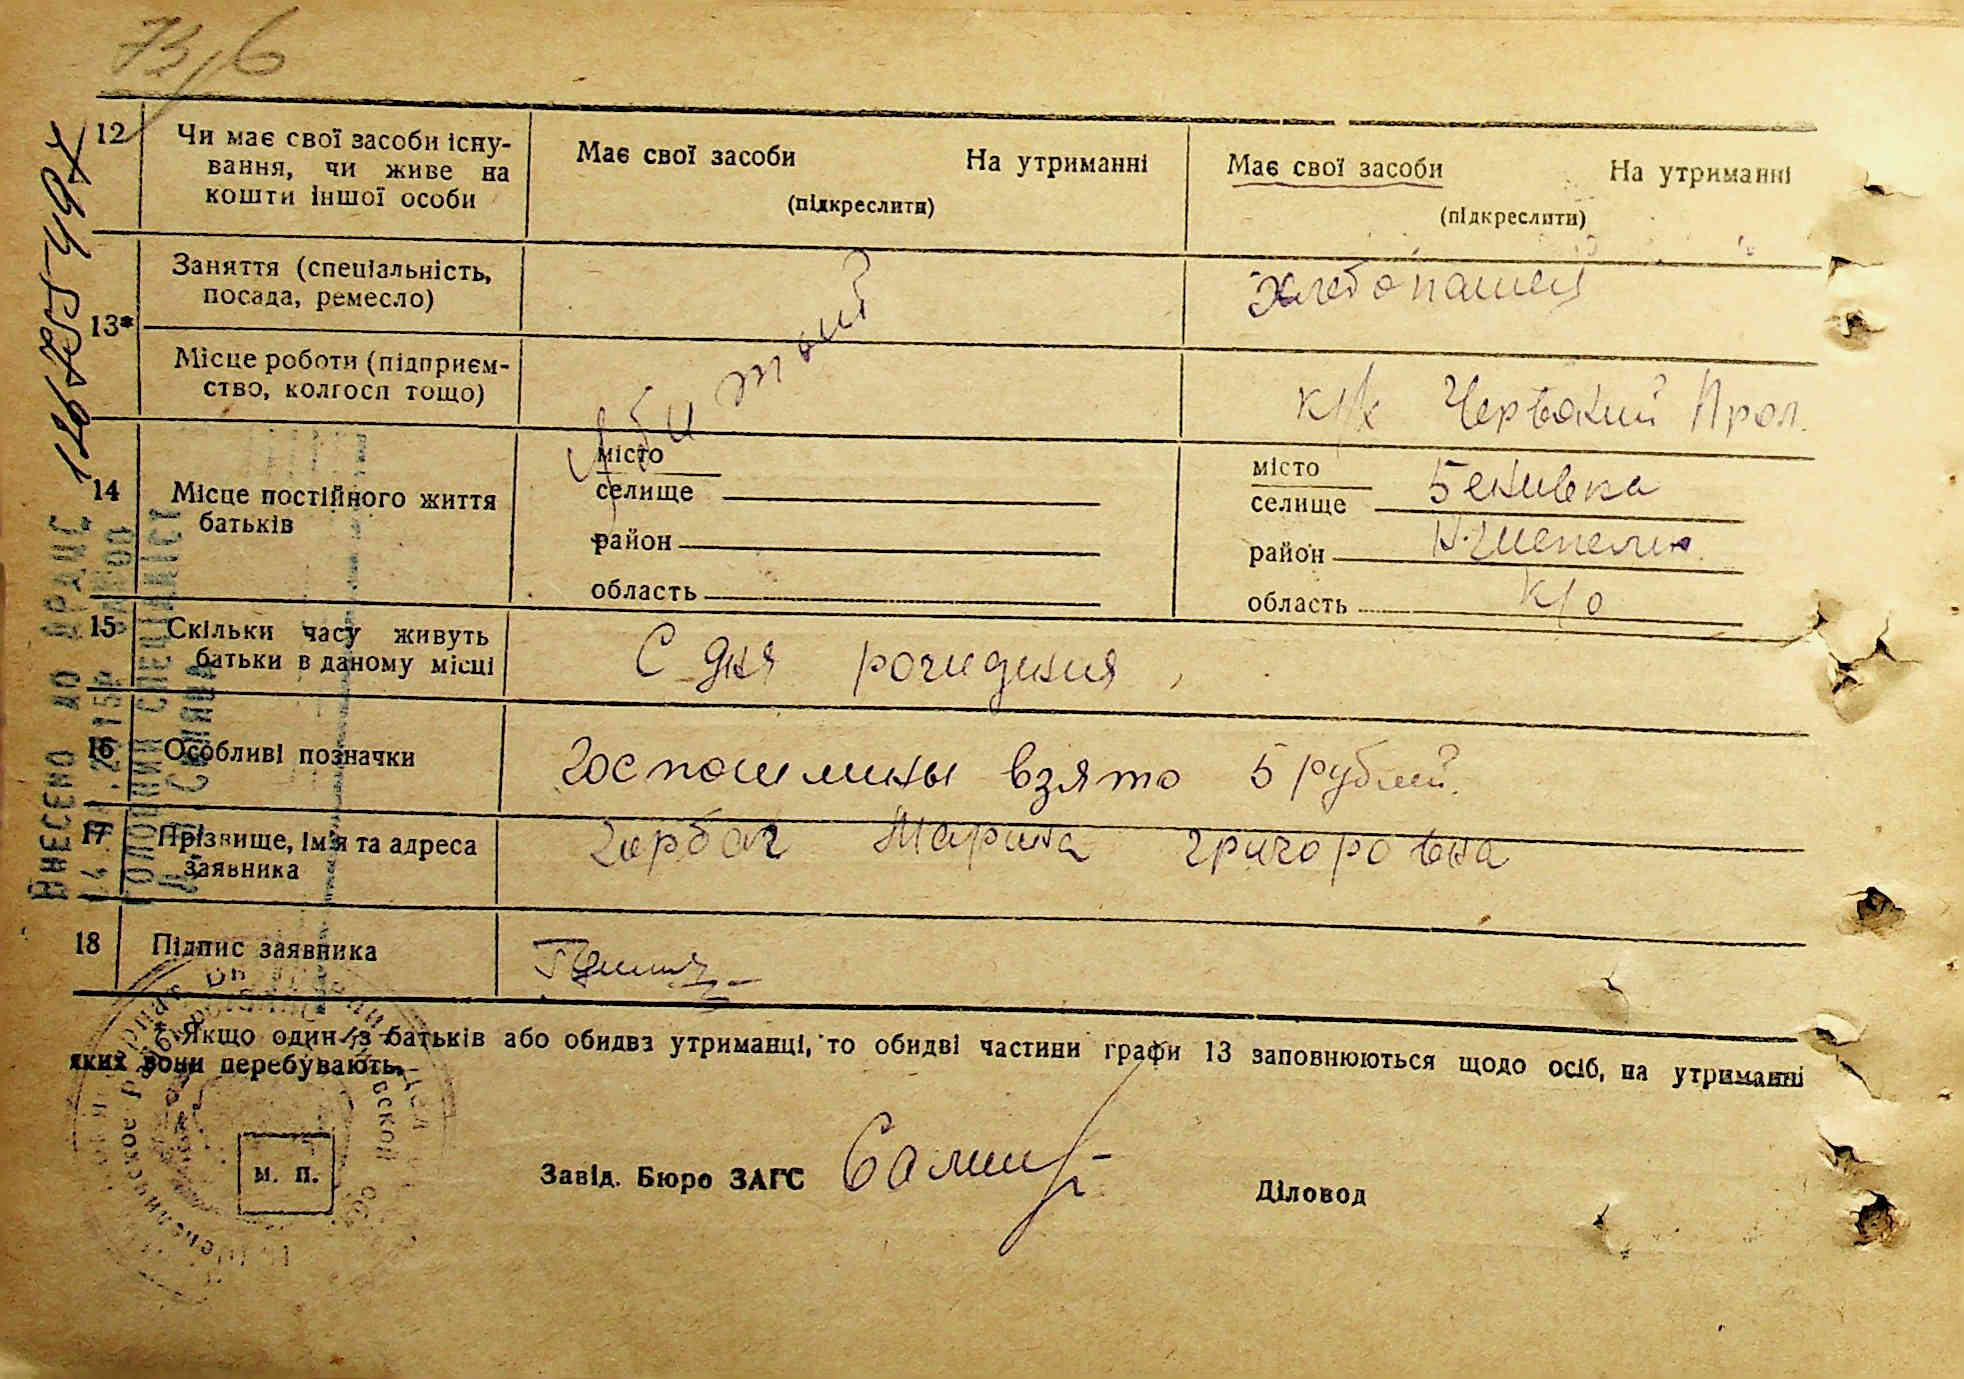 73/6
12 Чи має свої засоби існу-
вання, чи живе на
кошти іншої особи
Має свої засоби На утриманні
(підкреслити)
Має свої засоби На утриманні
(підкреслити)
13* Заняття (спеціальність,
посада, ремесло)
хлебопашец
Місце роботи (підприєм-
ство, колгосп тощо)
к/х Червоний Прол.
Убитый
14 Місце постійного життя
батьків
місто
селище
район
область
місто
селище Бенивка
район Н. Шепелич.
область К/о
15 Скільки часу живуть
батьки в даному місці
С дня рождения
16 Особливі позначки
Госпошлины взято 5 рублей.
17 Прізвище, ім'я та адреса
заявника
Горбач Марина Григоровна
18 Підпис заявника
* Якщо один із батьків або обидва утриманці, то обидві частини графи 13 заповнюються щодо осіб, на утриманні
яких вони перебувають.
М. П.
Завід. Бюро ЗАГС
Діловод
Внесено до ДРАЦС
головний спеціаліст